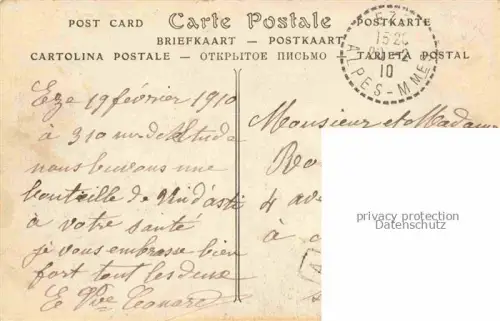 POST CARD Carte Postale POSTKARTE
BRIEFKAART - POSTKAART
CARTOLINA POSTALE - ОТКРЫТОЕ ПИСЬМО - TARJETA POSTAL
15
10
ALPES-MMES
Eze 19 février 1910
à 310 m d'altitude
nous buvons une
bouteille de vin d'asti
à votre santé
je vous embrasse bien
fort tout les deux
E Vve
Monsieur et Madame
4 av
à
privacy protection
Datenschutz